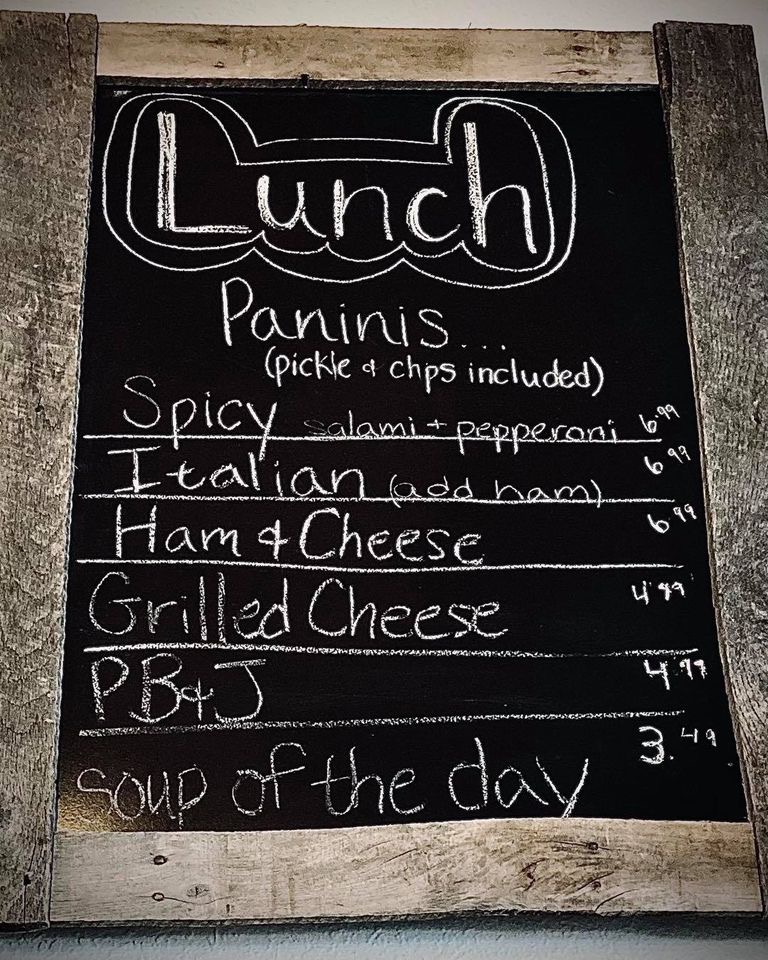 Lunch
Paninis...
(pickle & chps included)
Spicy salami + pepperoni 6.99
Italian (add ham) 6.99
Ham & Cheese 6.99
Grilled Cheese 4.99
PB&J 4.99
soup of the day 3.49